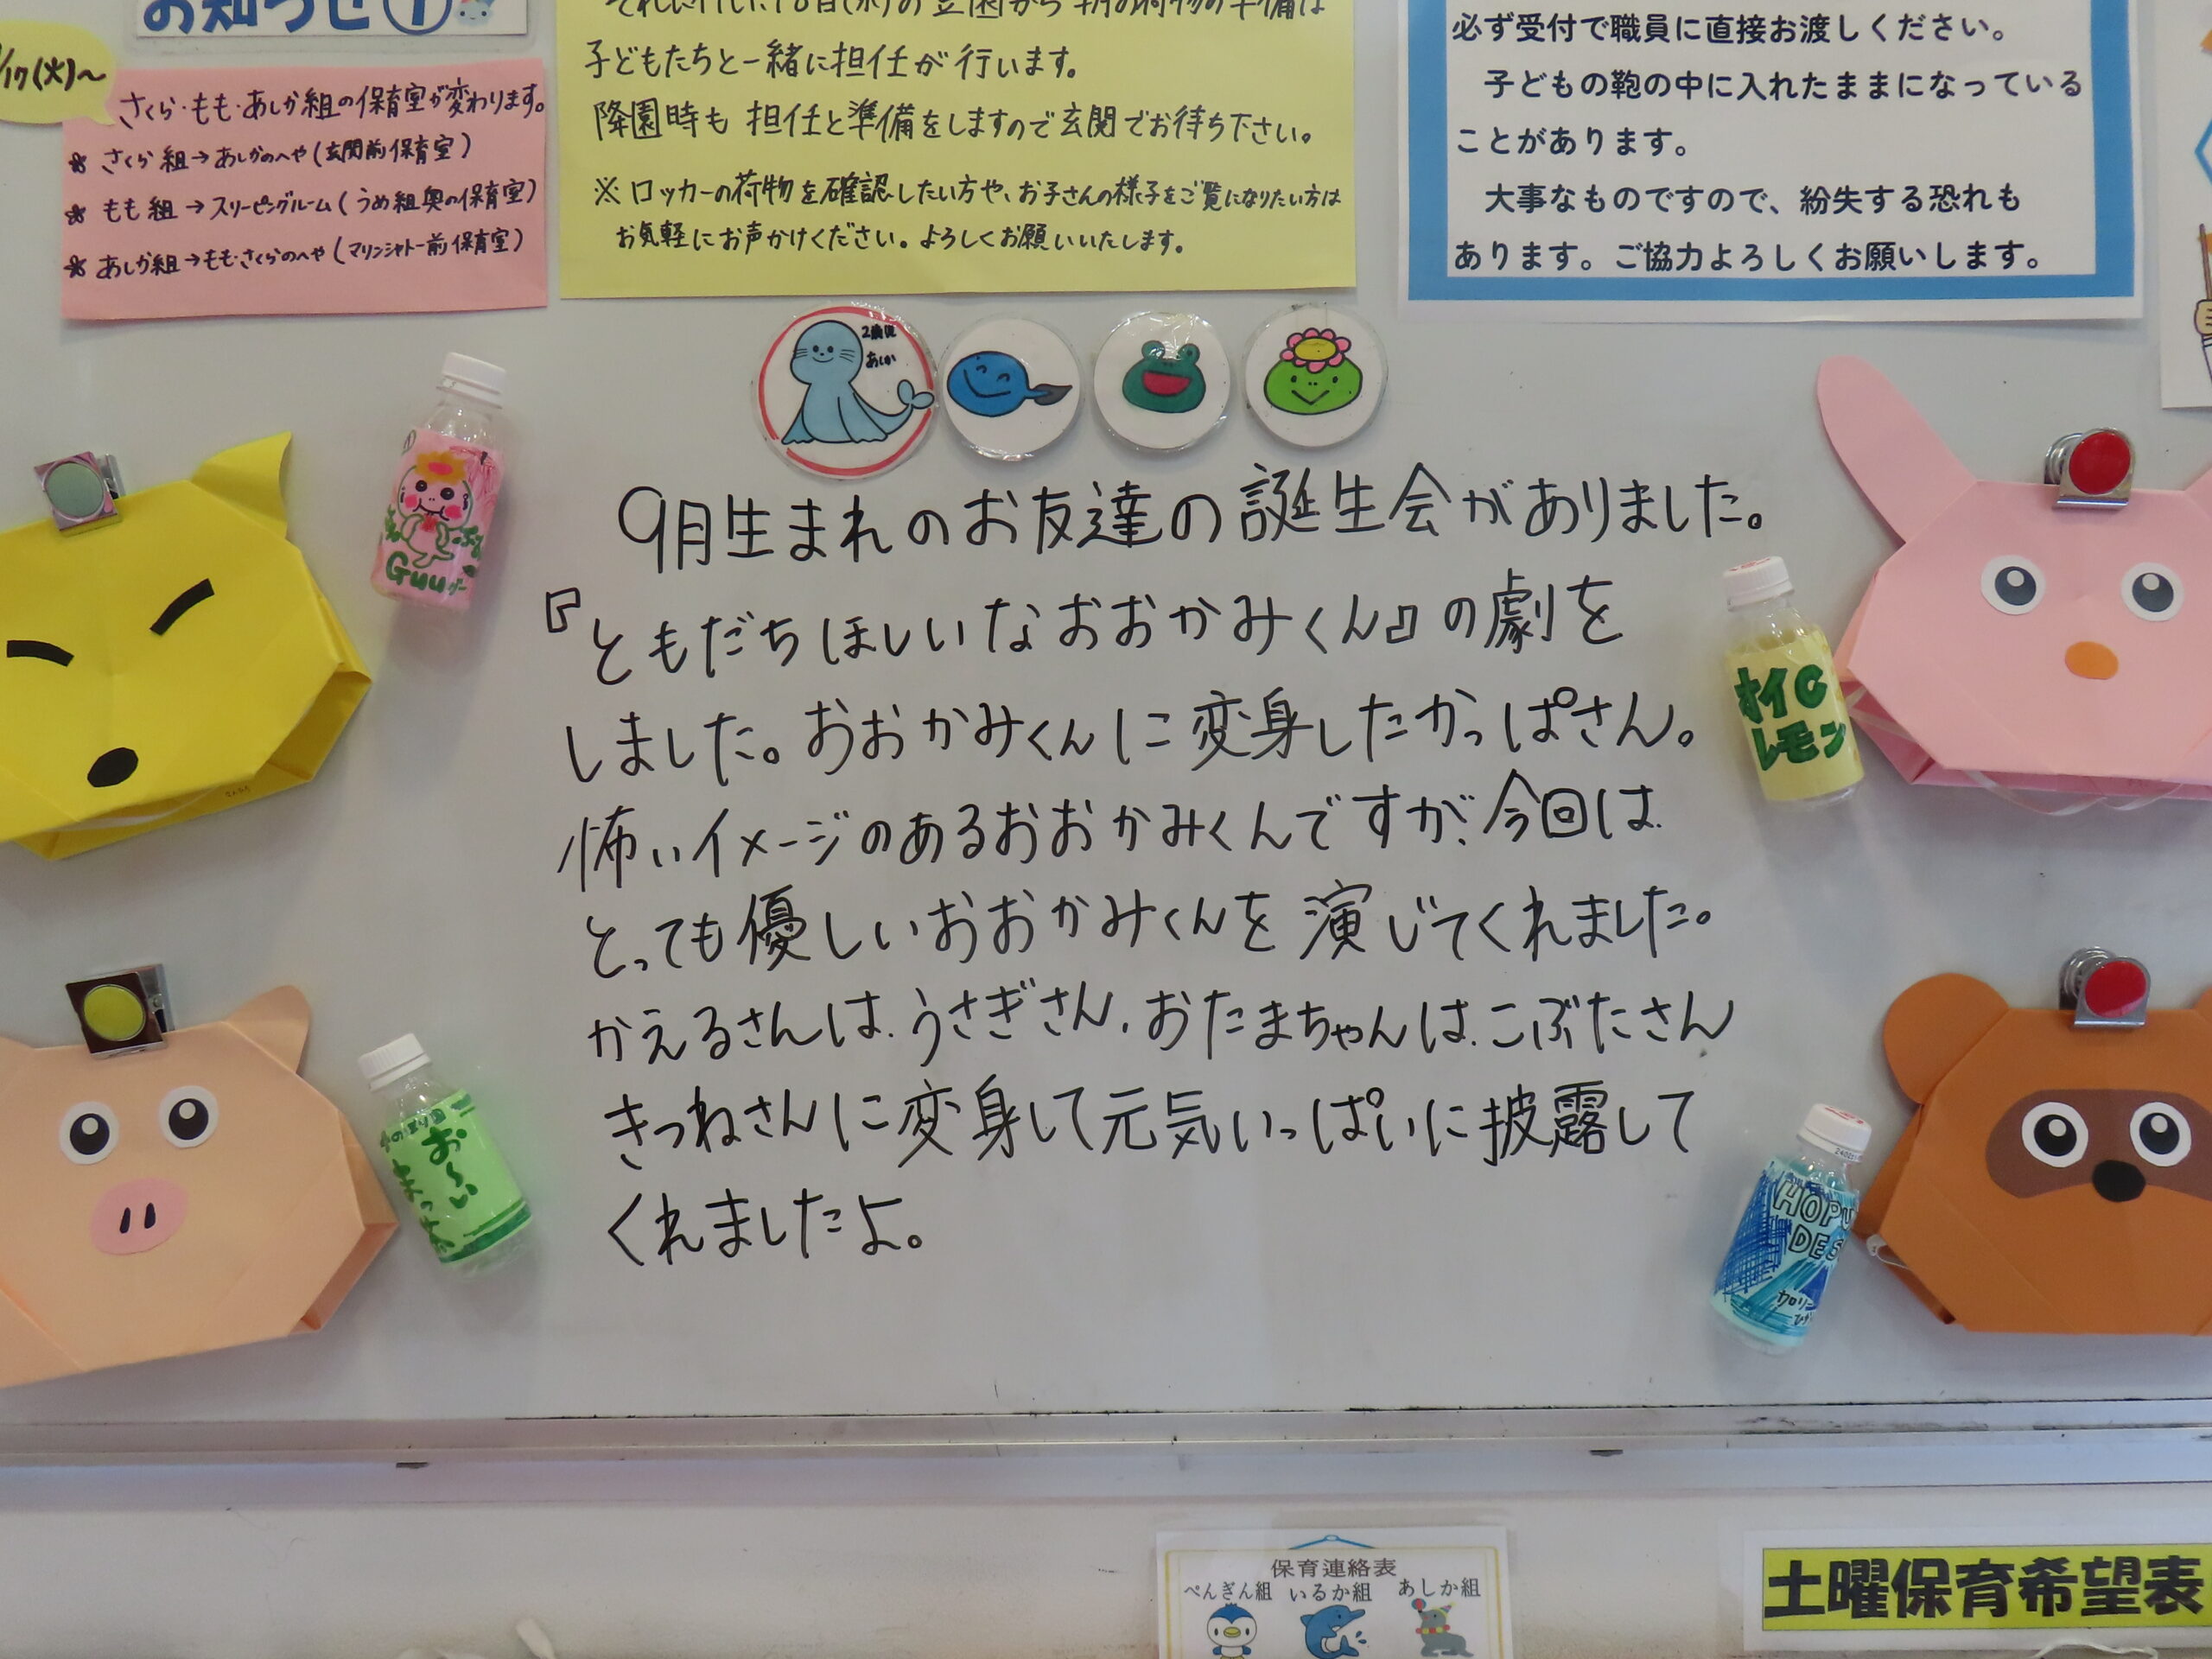 お知らせ①
/17(火)～
さくら・もも・あしか組の保育室が変わります。
* さくら組→あしかのへや(玄関前保育室)
* もも組→スリーピングルーム(うめ組奥の保育室)
* あしか組→もも・さくらのへや(マリンシャトー前保育室)
子どもたちと一緒に担任が行います。
降園時も担任と準備をしますので玄関でお待ち下さい。
※ロッカーの荷物を確認したい方や、お子さんの様子をご覧になりたい方は
お気軽にお声かけください。よろしくお願いいたします。
必ず受付で職員に直接お渡しください。
子どもの鞄の中に入れたままになっている
ことがあります。
大事なものですので、紛失する恐れも
あります。ご協力よろしくお願いします。
2歳児
あしか
9月生まれのお友達の誕生会がありました。
『ともだちほしいなおおかみくん』の劇を
しました。おおかみくんに変身したかっぱさん。
怖いイメージのあるおおかみくんですが、今回は
とっても優しいおおかみくんを演じてくれました。
かえるさんは、うさぎさん、おたまちゃんは、こぶたさん
きつねさんに変身して元気いっぱいに披露して
くれましたよ。
Guu
オイC
レモン
お〜い
まっ茶
HOPU
DES
カロリー
保育連絡表
ぺんぎん組 いるか組 あしか組
土曜保育希望表